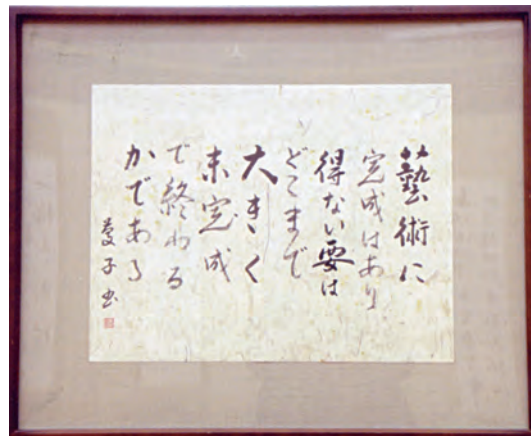 藝術に
完成はあり
得ない要は
どこまで
大きく
未完成
で終わる
かである
慶子書